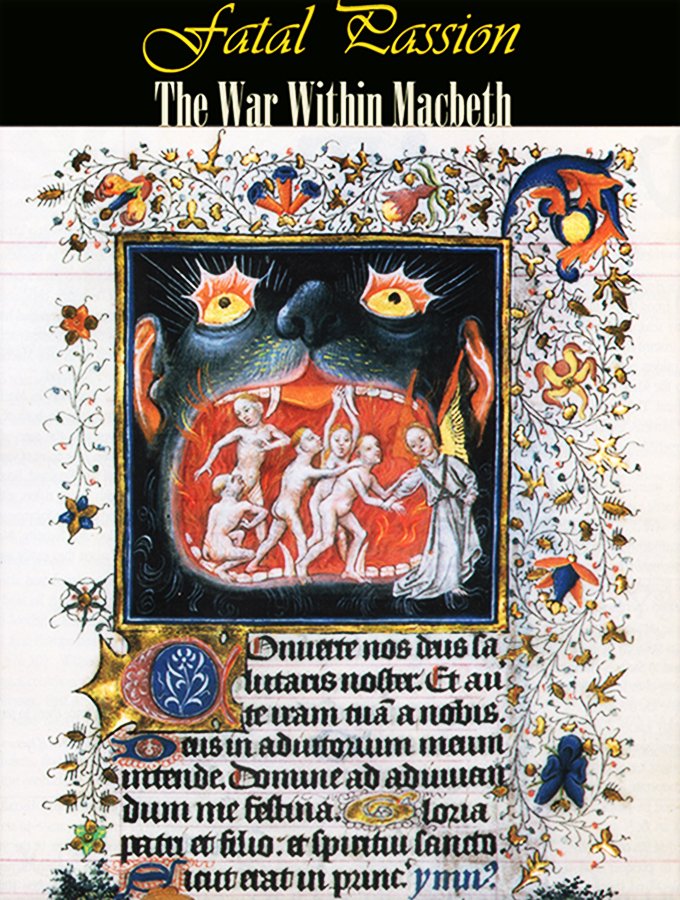 Fatal Passion
The War Within Macbeth
COnuerte nos deus sa
lutaris noster. Et auer
te iram tuā a nobis.
Deus in adiutorium meum
intende. Domine ad adiuuan
dum me festina. Gloria
patri et filio: et spiritui sancto.
Sicut erat in princ.